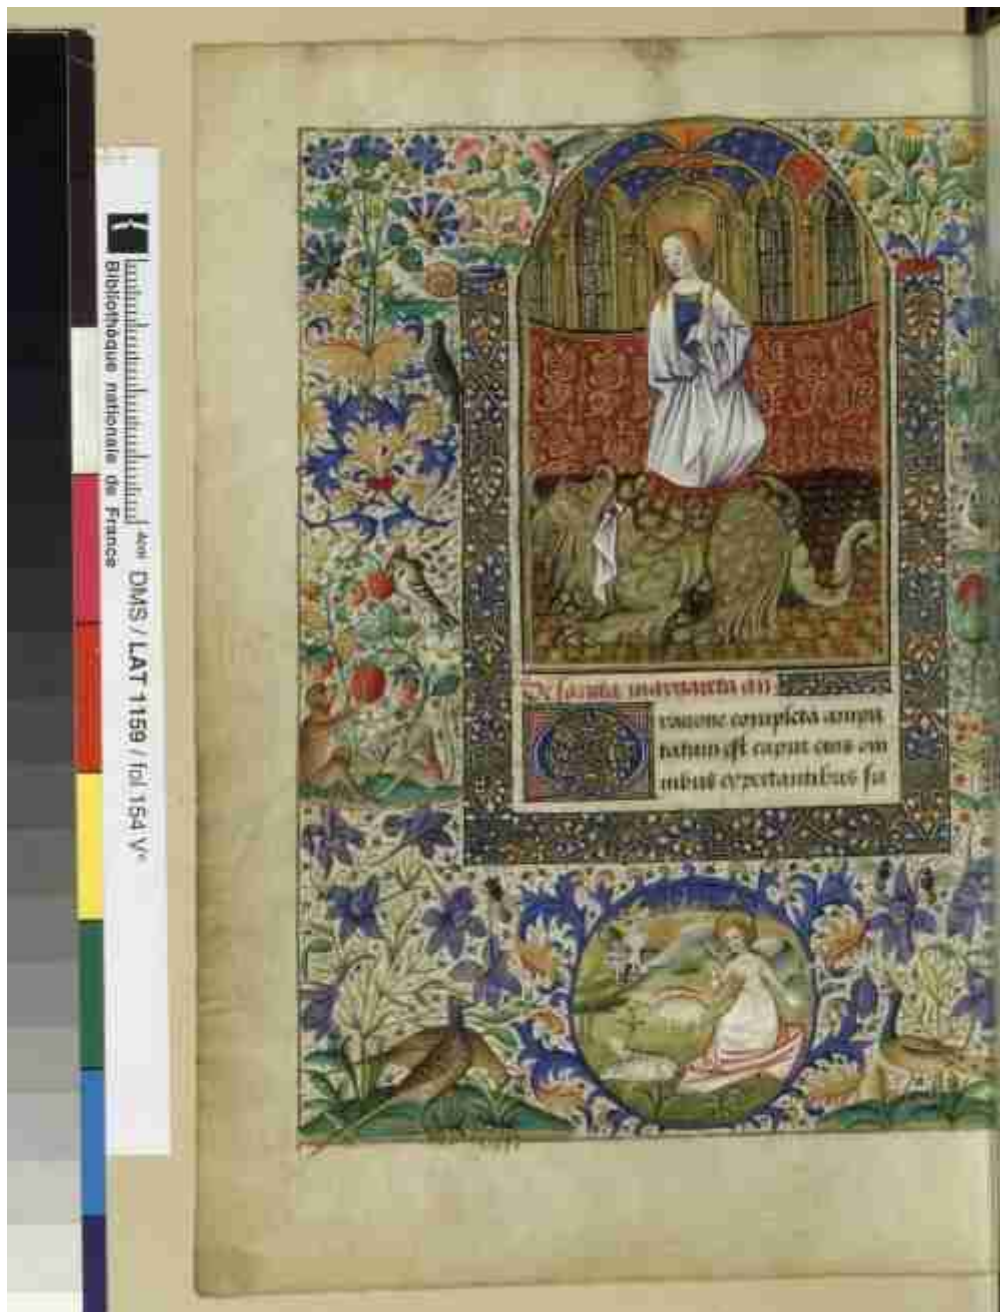 Bibliothèque nationale de France
4cm DMS / LAT 1159 / fol 154 V°
De sancta margareta an
ratione completa ampu
tatum est caput eius om
nibus expectantibus su